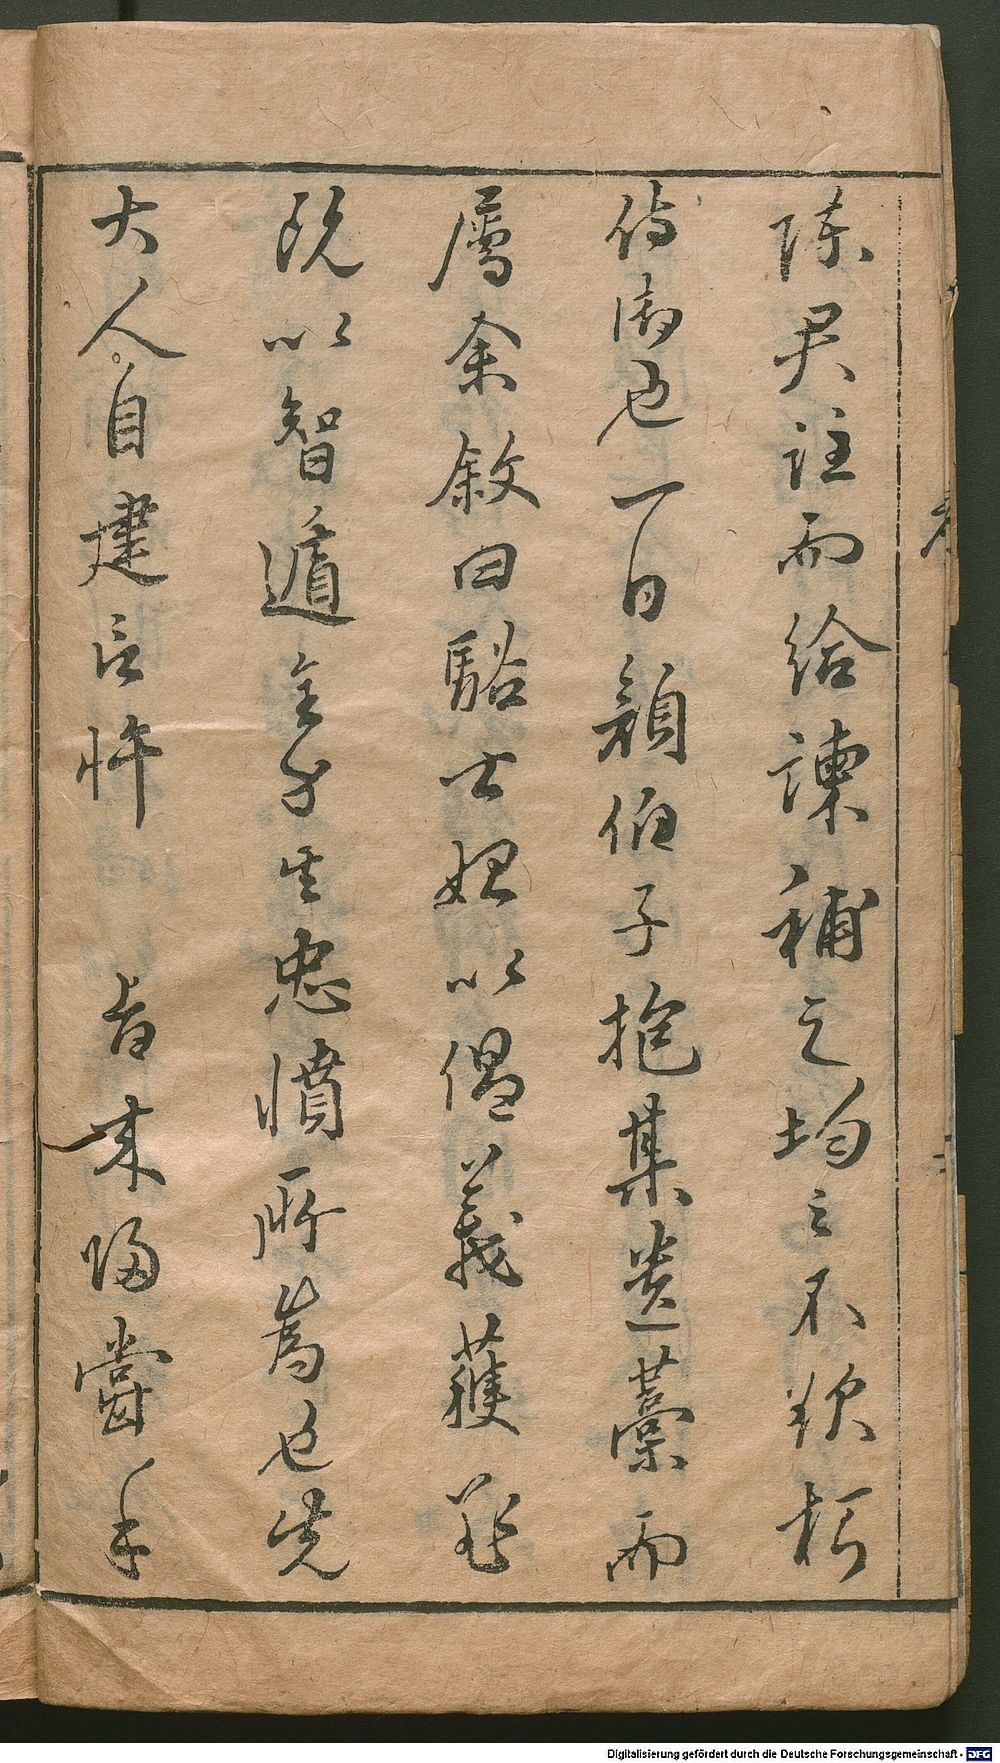 陳君註而給諫補之均之不欲朽
侍御也一日穎伯子抱其遺藁而
屬余敘曰駱士以義獲
既以智遁全身其忠憤所為也先
大人自建言忤 旨來歸嘗手
Digitalisierung gefördert durch die Deutsche Forschungsgemeinschaft - DFG